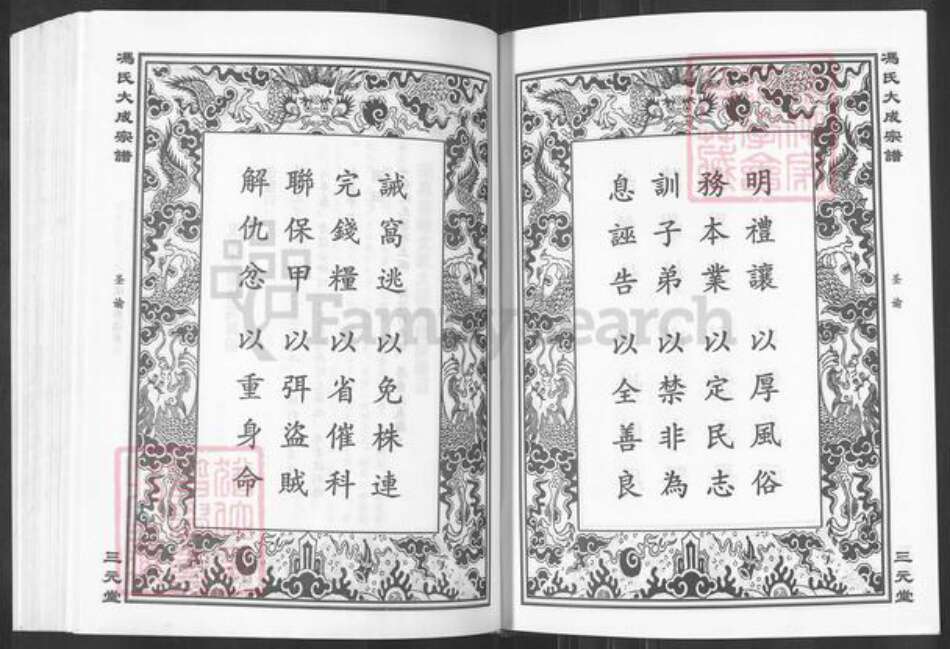 馮氏大成宗譜
圣諭
三元堂
明禮讓 以厚風俗
務本業 以定民志
訓子弟 以禁非為
息誣告 以全善良
誡窩逃 以免株連
完錢糧 以省催科
聯保甲 以弭盜賊
解仇忿 以重身命
馮氏大成宗譜
圣諭
三元堂
FamilySearch